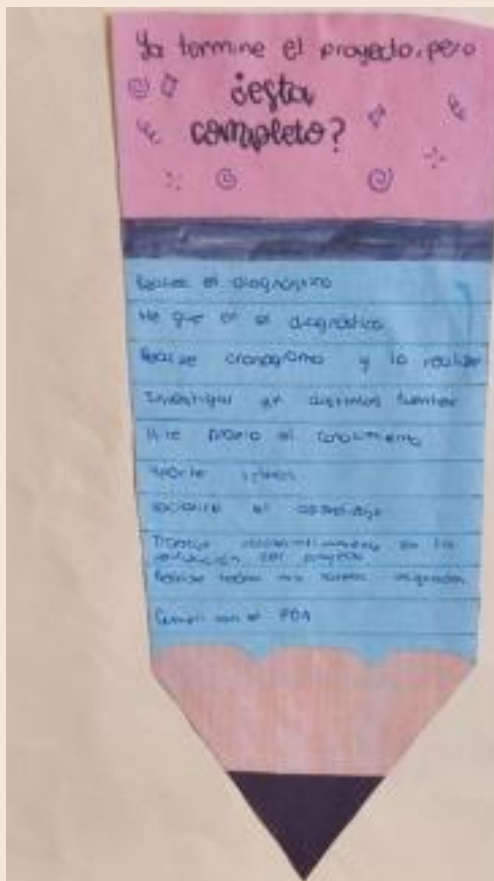 Ya termine el proyecto, pero
¿esta
completo?
Realice el diagnóstico
Me que en el diagnóstico
Realice cronograma y lo realice
Investigar en distintas fuentes
Hice propio el conocimiento
Aporte ideas
socialice el aprendizaje
Trabaje en la
realización del proyecto
Realice todas mis tareas asignadas
Cumpli con el PDA